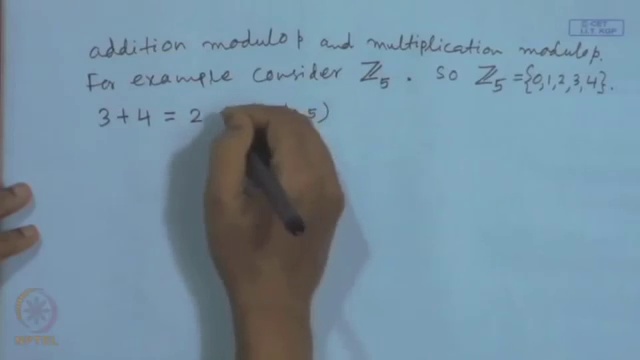 addition modulo p and multiplication modulo p.
For example consider ℤ₅. So ℤ₅ = {0,1,2,3,4}.
3 + 4 = 2 5)
NPTEL